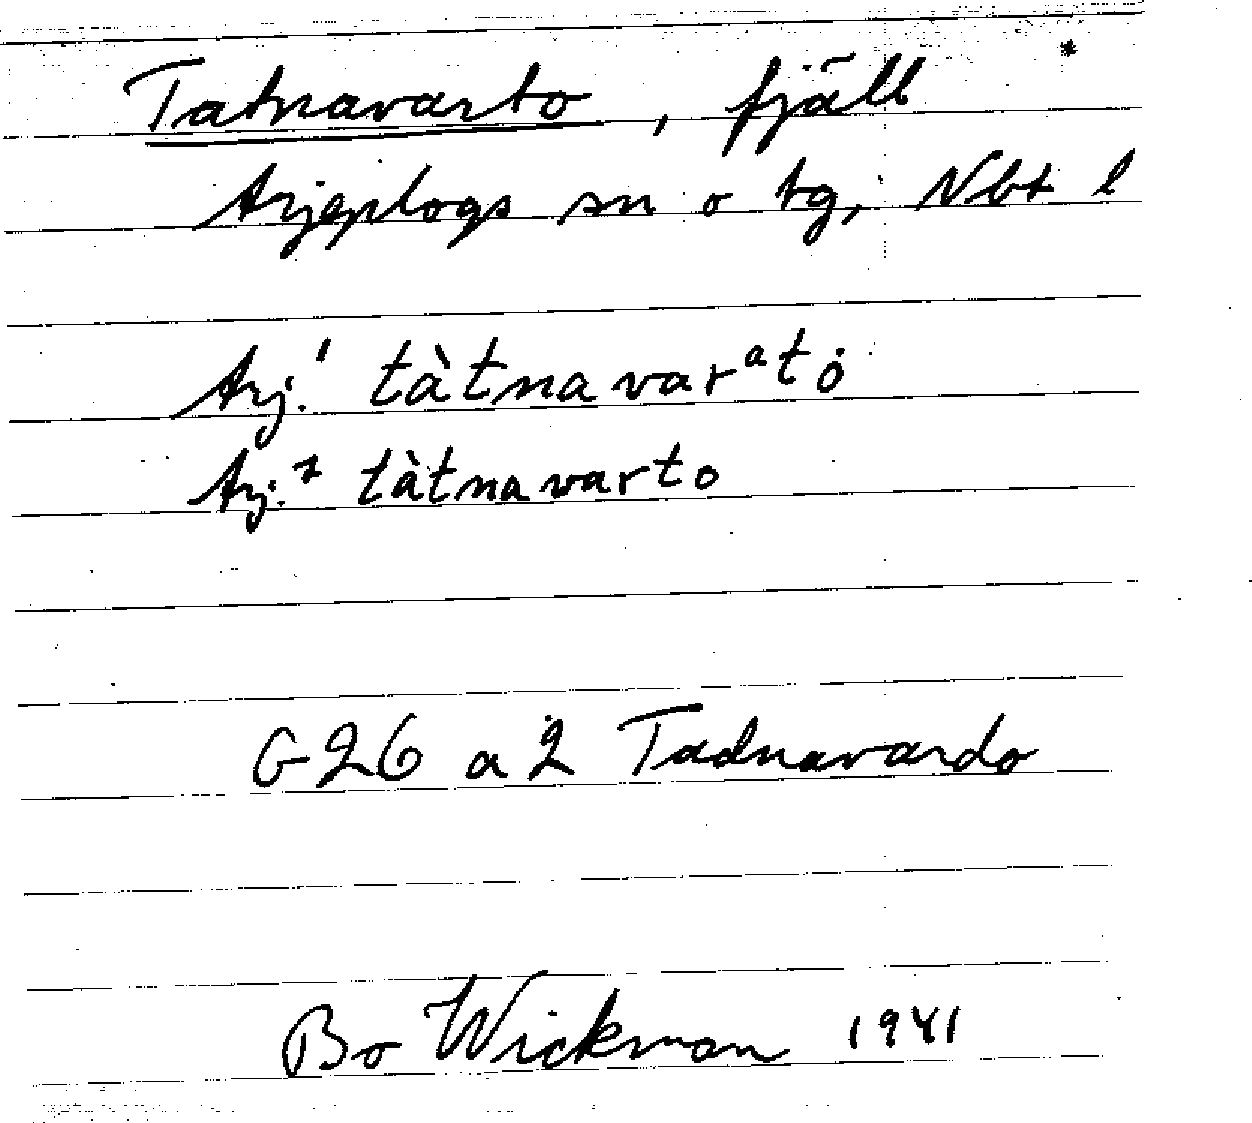 Tatnavarto, fjäll
Arjeplogs sn o tg, Nbt l
Arj.¹ tàtnavarᵃtȯ
Arj.² tàtnavarto
G26 a 2 Tadnavardo
Bo Wickman 1941